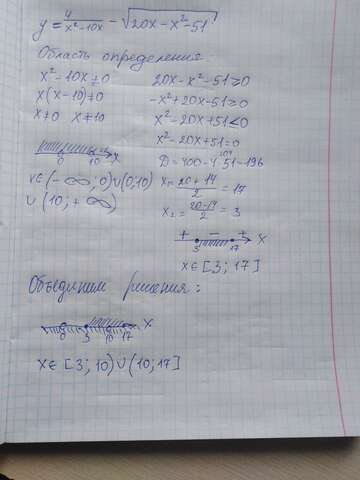 y = 4/(x²-10x) - √(20x - x² - 51)
Область определения:
x² - 10x ≠ 0
x(x - 10) ≠ 0
x ≠ 0 x ≠ 10
0 10 x
x ∈ (-∞; 0) ∪ (0; 10)
∪ (10; +∞)
20x - x² - 51 ≥ 0
-x² + 20x - 51 ≥ 0
x² - 20x + 51 ≤ 0
x² - 20x + 51 = 0
D = 400 - 4·51 = 196
x₁ = (20 + 14)/2 = 17
x₂ = (20 - 14)/2 = 3
+ - + x
3 17
x ∈ [3; 17]
Объединим решения:
0 3 10 17 x
x ∈ [3; 10) ∪ (10; 17]